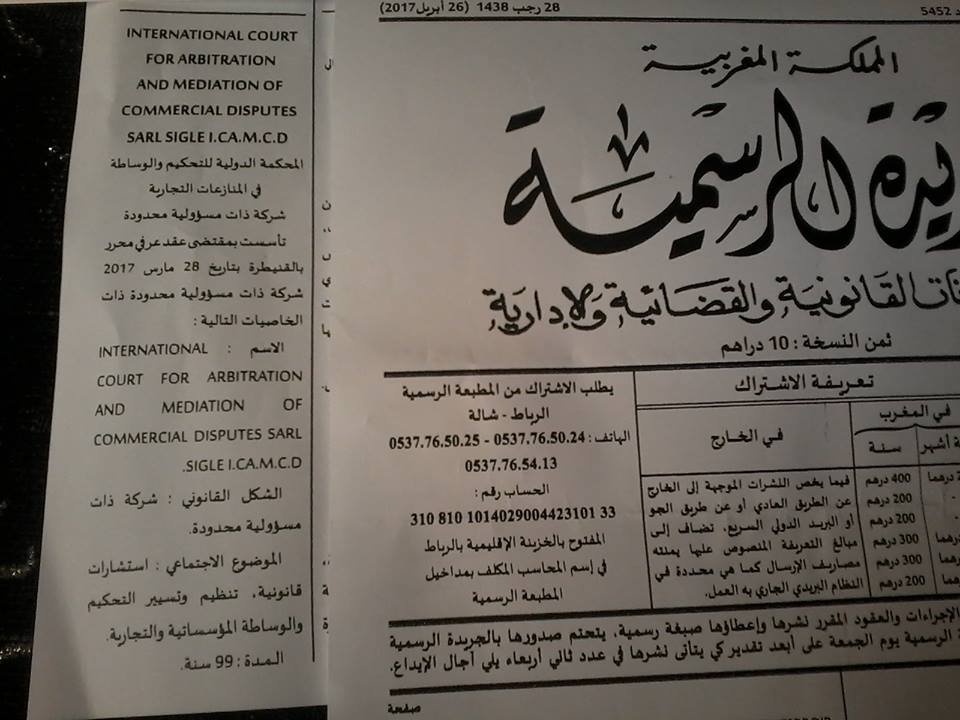 INTERNATIONAL COURT
FOR ARBITRATION
AND MEDIATION OF
COMMERCIAL DISPUTES
SARL SIGLE I.CA.M.C.D
المحكمة الدولية للتحكيم والوساطة
في المنازعات التجارية
شركة ذات مسؤولية محدودة
تأسست بمقتضى عقد عرفي محرر
بالقنيطرة بتاريخ 28 مارس 2017
شركة ذات مسؤولية محدودة ذات
الخاصيات التالية :
الاسم : INTERNATIONAL
COURT FOR ARBITRATION
AND MEDIATION OF
COMMERCIAL DISPUTES SARL
SIGLE I.CA.M.C.D.
الشكل القانوني : شركة ذات
مسؤولية محدودة.
الموضوع الاجتماعي : استشارات
قانونية، تنظيم وتسيير التحكيم
والوساطة المؤسساتية والتجارية.
المدة : 99 سنة.
5452
28 رجب 1438 (26 أبريل 2017)
المملكة المغربية
الرسمية
القانونية والقضائية والإدارية
ثمن النسخة : 10 دراهم
تعريفة الاشتراك
في المغرب
سنة
أشهر
في الخارج
400 درهم
200 درهم
200 درهم
300 درهم
300 درهم
200 درهم
فيما يخص النشرات الموجهة إلى الخارج
عن الطريق العادي أو عن طريق الجو
أو البريد الدولي السريع، تضاف إلى
مبالغ التعريفة المنصوص عليها يمنته
مصاريف الإرسال كما هي محددة في
النظام البريدي الجاري به العمل.
يطلب الاشتراك من المطبعة الرسمية
الرباط - شالة
الهاتف : 0537.76.50.24 - 0537.76.50.25
0537.76.54.13
الحساب رقم :
310 810 1014029004423101 33
المفتوح بالخزينة الإقليمية بالرباط
في إسم المحاسب المكلف بمداخيل
المطبعة الرسمية
الإجراءات والعقود المقرر نشرها وإعطاؤها صبغة رسمية، يتحتم صدورها بالجريدة الرسمية
الرسمية يوم الجمعة على أبعد تقدير كي يتأتى نشرها في عدد ثاني أربعاء يلي آجال الإيداع.
صفحة